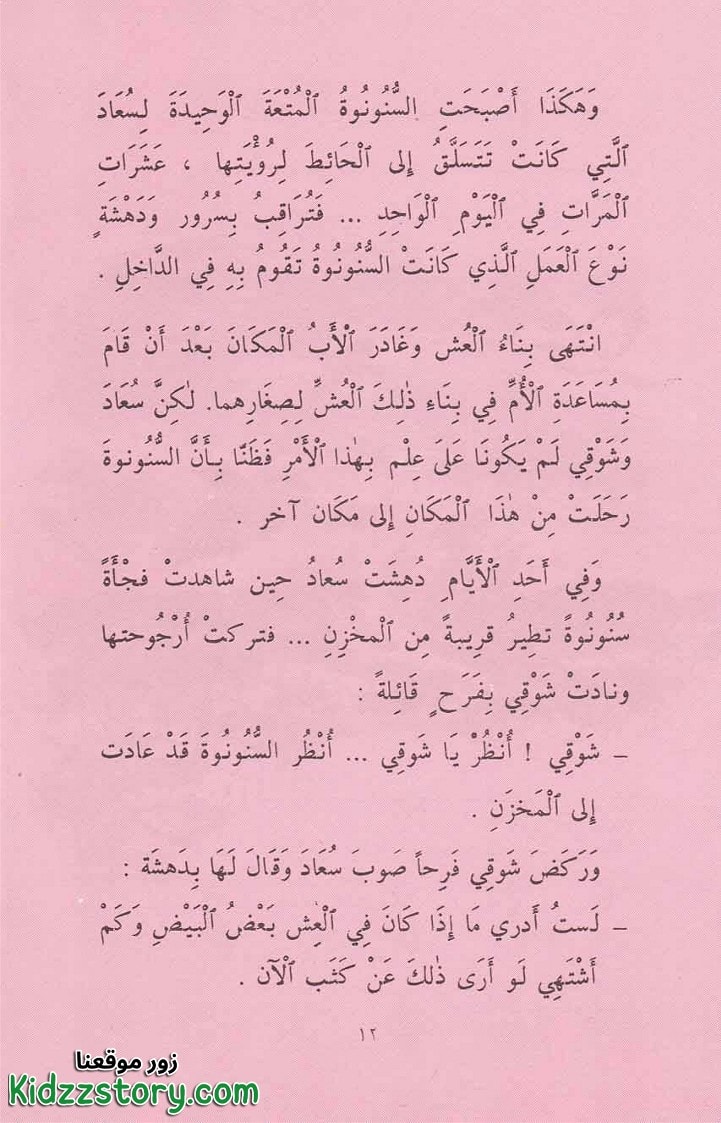 وَهَكَذَا أَصْبَحَتِ السُّنُونُوةُ ٱلْمُتْعَةَ ٱلْوَحِيدَةَ لِسُعَادَ
ٱلَّتِي كَانَتْ تَتَسَلَّقُ إِلى ٱلْحَائِطَ لِرُؤْيَتِها ، عَشَرَاتِ
ٱلْمَرَّاتِ فِي ٱلْيَوْمِ ٱلْوَاحِدِ ... فَتُرَاقِبُ بِسُرُور وَدَهْشَةٍ
نَوْعَ ٱلْعَمَلِ ٱلَّذِي كَانَتْ السُّنُونُوةُ تَقُومُ بِهِ فِي الدَّاخِلِ .
انْتَهَى بِنَاءُ ٱلْعُش وَغَادَرَ ٱلْأَبُ ٱلْمَكَانَ بَعْدَ أَنْ قَامَ
بِمُسَاعَدَةِ ٱلْأُمِّ فِي بِنَاءِ ذٰلِكَ ٱلْعُشِّ لِصِغَارِهِما. لٰكِنَّ سُعَادَ
وَشَوْقِي لَمْ يَكُونَا عَلىَ عِلْم بِهٰذا ٱلْأَمْرِ فَظَنّا بِأَنَّ السُّنُونوةَ
رَحَلَتْ مِنْ هٰذَا ٱلْمَكَانِ إِلى مَكَان آخر .
وَفِي أَحَدِ ٱلْأَيَّامِ دُهِشَتْ سُعادُ حِين شاهدتْ فجْأَةً
سُنُونُوةً تطِيرُ قرِيبةً مِن ٱلْمخْزِنِ ... فتركتْ أُرْجُوحتها
ونادَتْ شَوْقِي بِفَرَحٍ قَائِلةً :
– شَوْقِي ! أُنْظُرْ يَا شَوقي ... أُنْظُر السُّنُونُوةَ قَدْ عَادَت
إِلى ٱلْمَخزَنِ .
وَرَكَضَ شَوقِي فَرِحاً صَوبَ سُعَادَ وَقَالَ لَهَا بِدَهشَة :
– لَستُ أَدري مَا إِذَا كَانَ فِي ٱلْعُِش بَعْضُ ٱلْبَيْضِ وَكَمْ
أَشْتَهِي لَو أَرَى ذٰلكَ عَنْ كَثَب ٱلْآن .
١٢
زور موقعنا
Kidzzstory.com